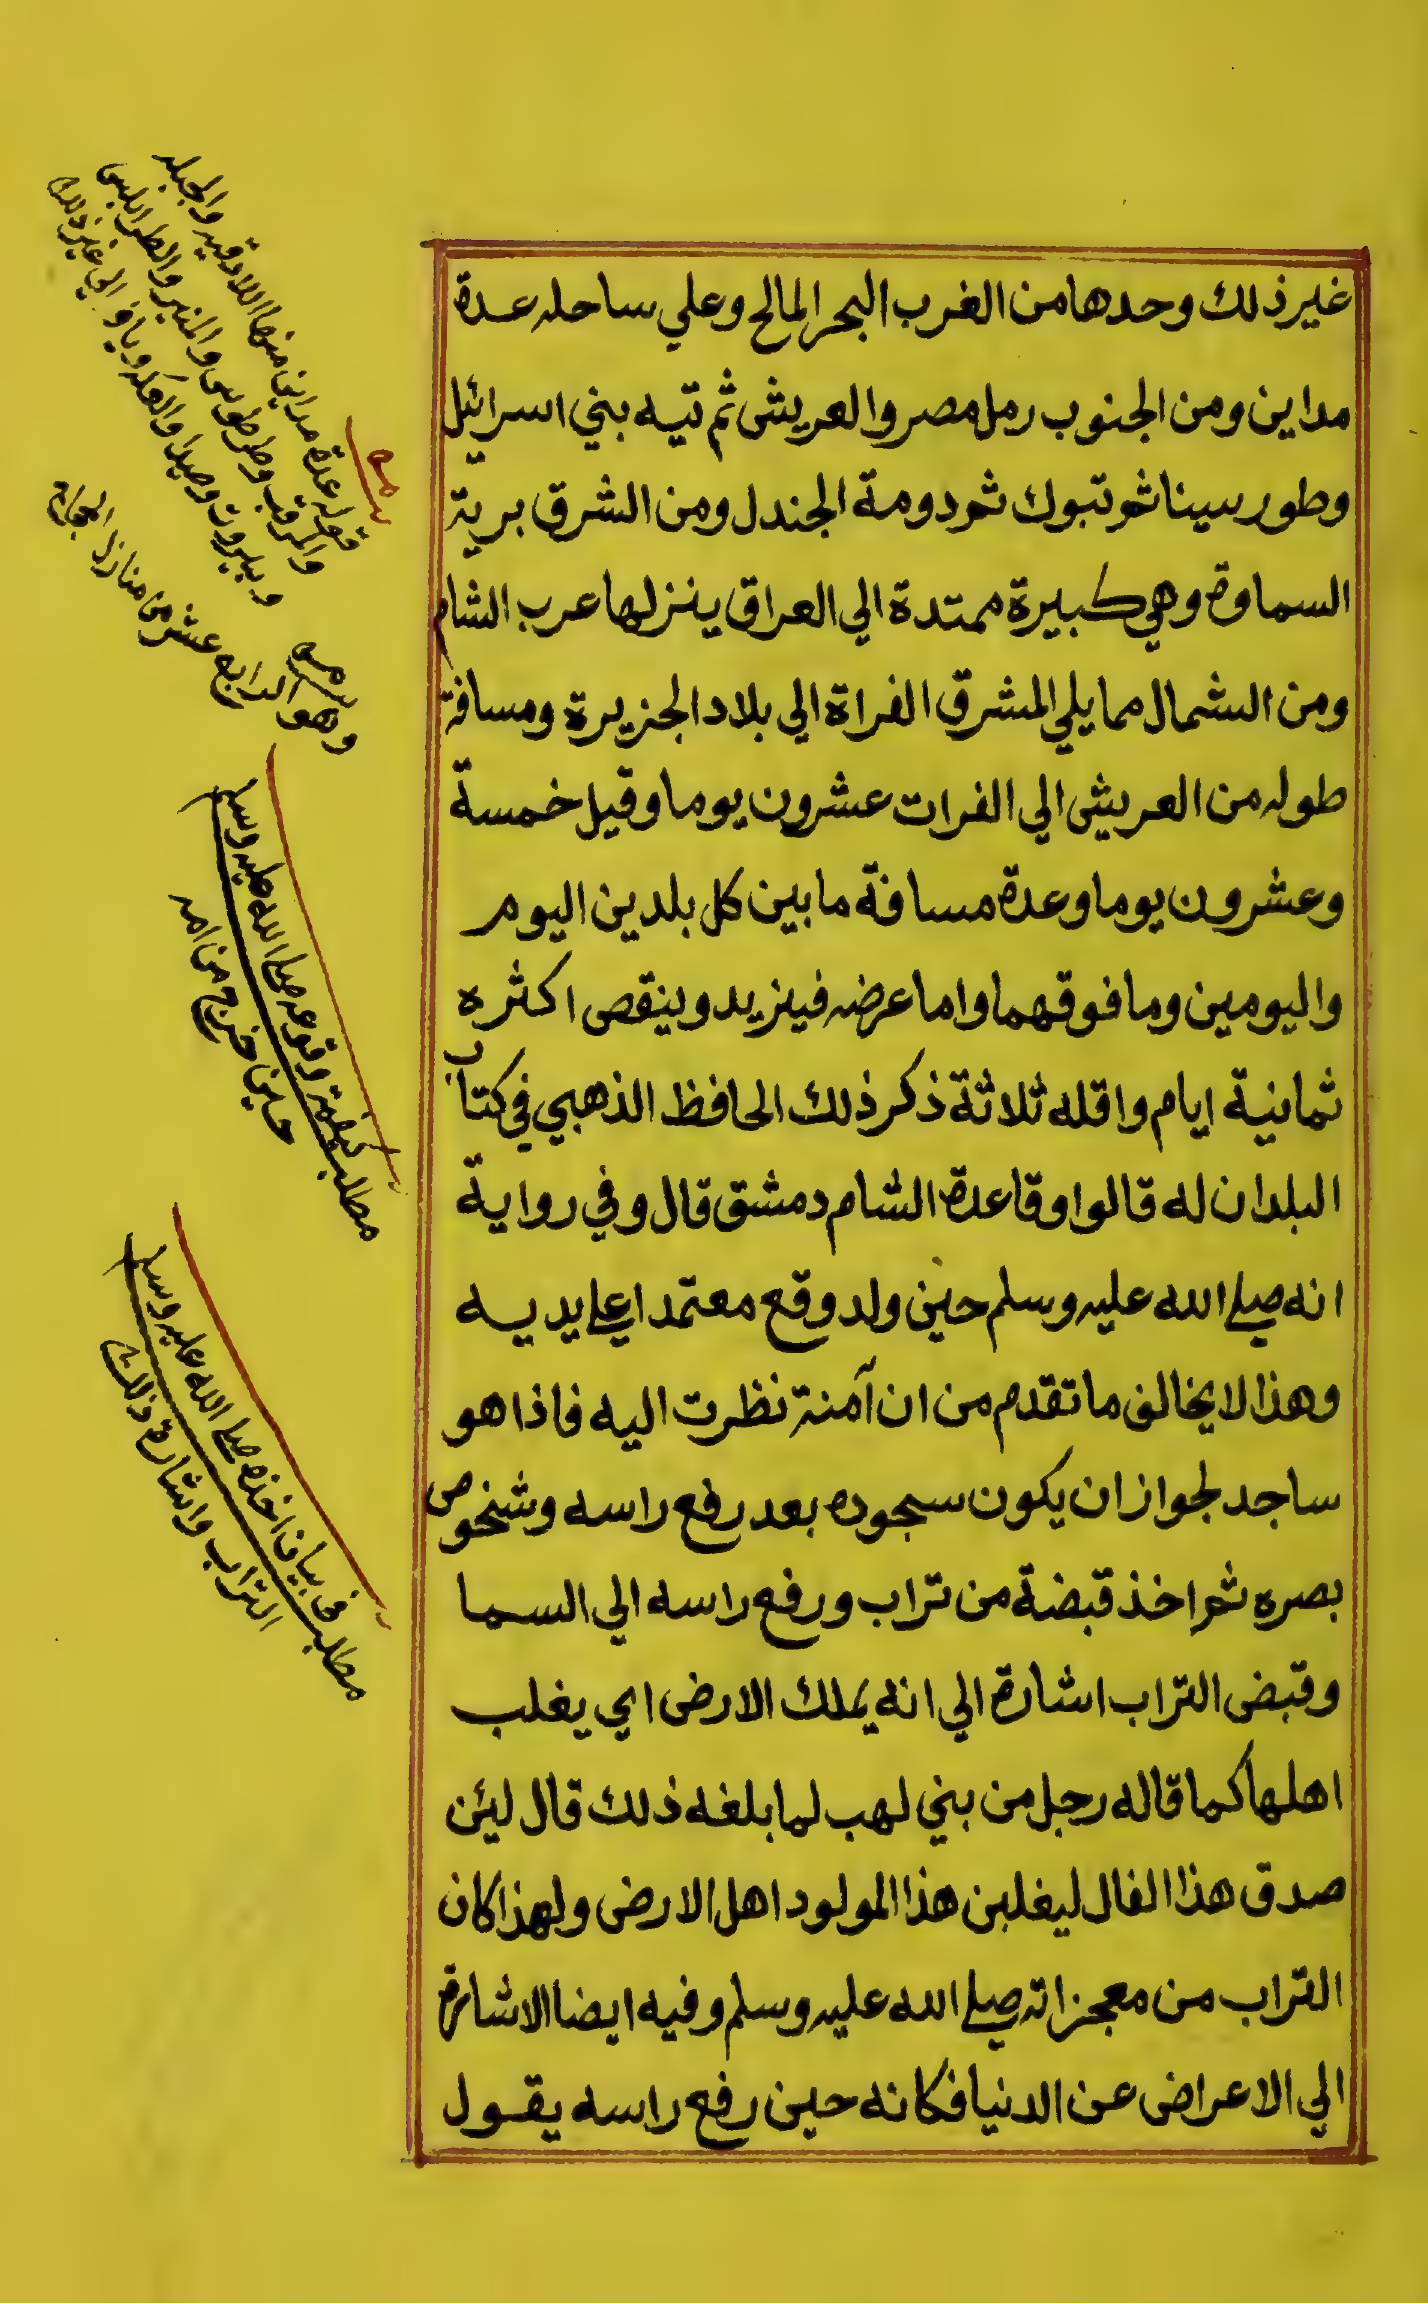 غير ذلك وحدها من الغرب البحر المالح وعلي ساحله عدة
مداين ومن الجنوب رمل مصر والعريش ثم تيه بني اسرائيل
وطور سينا ثم تبوك ثم دومة الجندل ومن الشرق برية
السماوة وهي كبيرة ممتدة الي العراق ينزلها عرب الشام
ومن الشمال مما يلي المشرق الفراة الي بلاد الجزيرة ومسافة
طوله من العريش الي الفرات عشرون يوما وقيل خمسة
وعشرون يوما وعدة مسافة ما بين كل بلدين اليوم
واليومين وما فوقهما واما عرضه فيزيد وينقص اكثره
ثمانية ايام واقله ثلاثة ذكر ذلك الحافظ الذهبي في كتاب
البلدان له قالوا وقاعدة الشام دمشق قال وفي رواية
انه صلي الله عليه وسلم حين ولد وقع معتمدا علي يديه
وهذا لا يخالف ما تقدم من ان آمنة نظرت اليه فاذا هو
ساجد لجواز ان يكون سجوده بعد رفع راسه وشخوص
بصره ثم اخذ قبضة من تراب ورفع راسه الي السما
وقبض التراب اشارة الي انه يملك الارض اي يغلب
اهلها كما قاله رجل من بني لهب لما بلغه ذلك قال لئن
صدق هذا الفال ليغلبن هذا المولود اهل الارض ولهذا كان
التراب من معجزاته صلي الله عليه وسلم وفيه ايضا الاشارة
الي الاعراض عن الدنيا فكانه حين رفع راسه يقول
قوله عدة مداين منها اللادقيه والجبله
والمرقب وطرطوس والمنير والطرابلس
وبيروت وصيدا والعكه ويافه الي غير ذلك
وهو الرابع عشر من منازل الحجاج
مطلب كيفية وقوعه صلي الله عليه وسلم
حين خرج من امه
مطلب في بيان اخذه صلي الله عليه وسلم
التراب واشارة ذلك